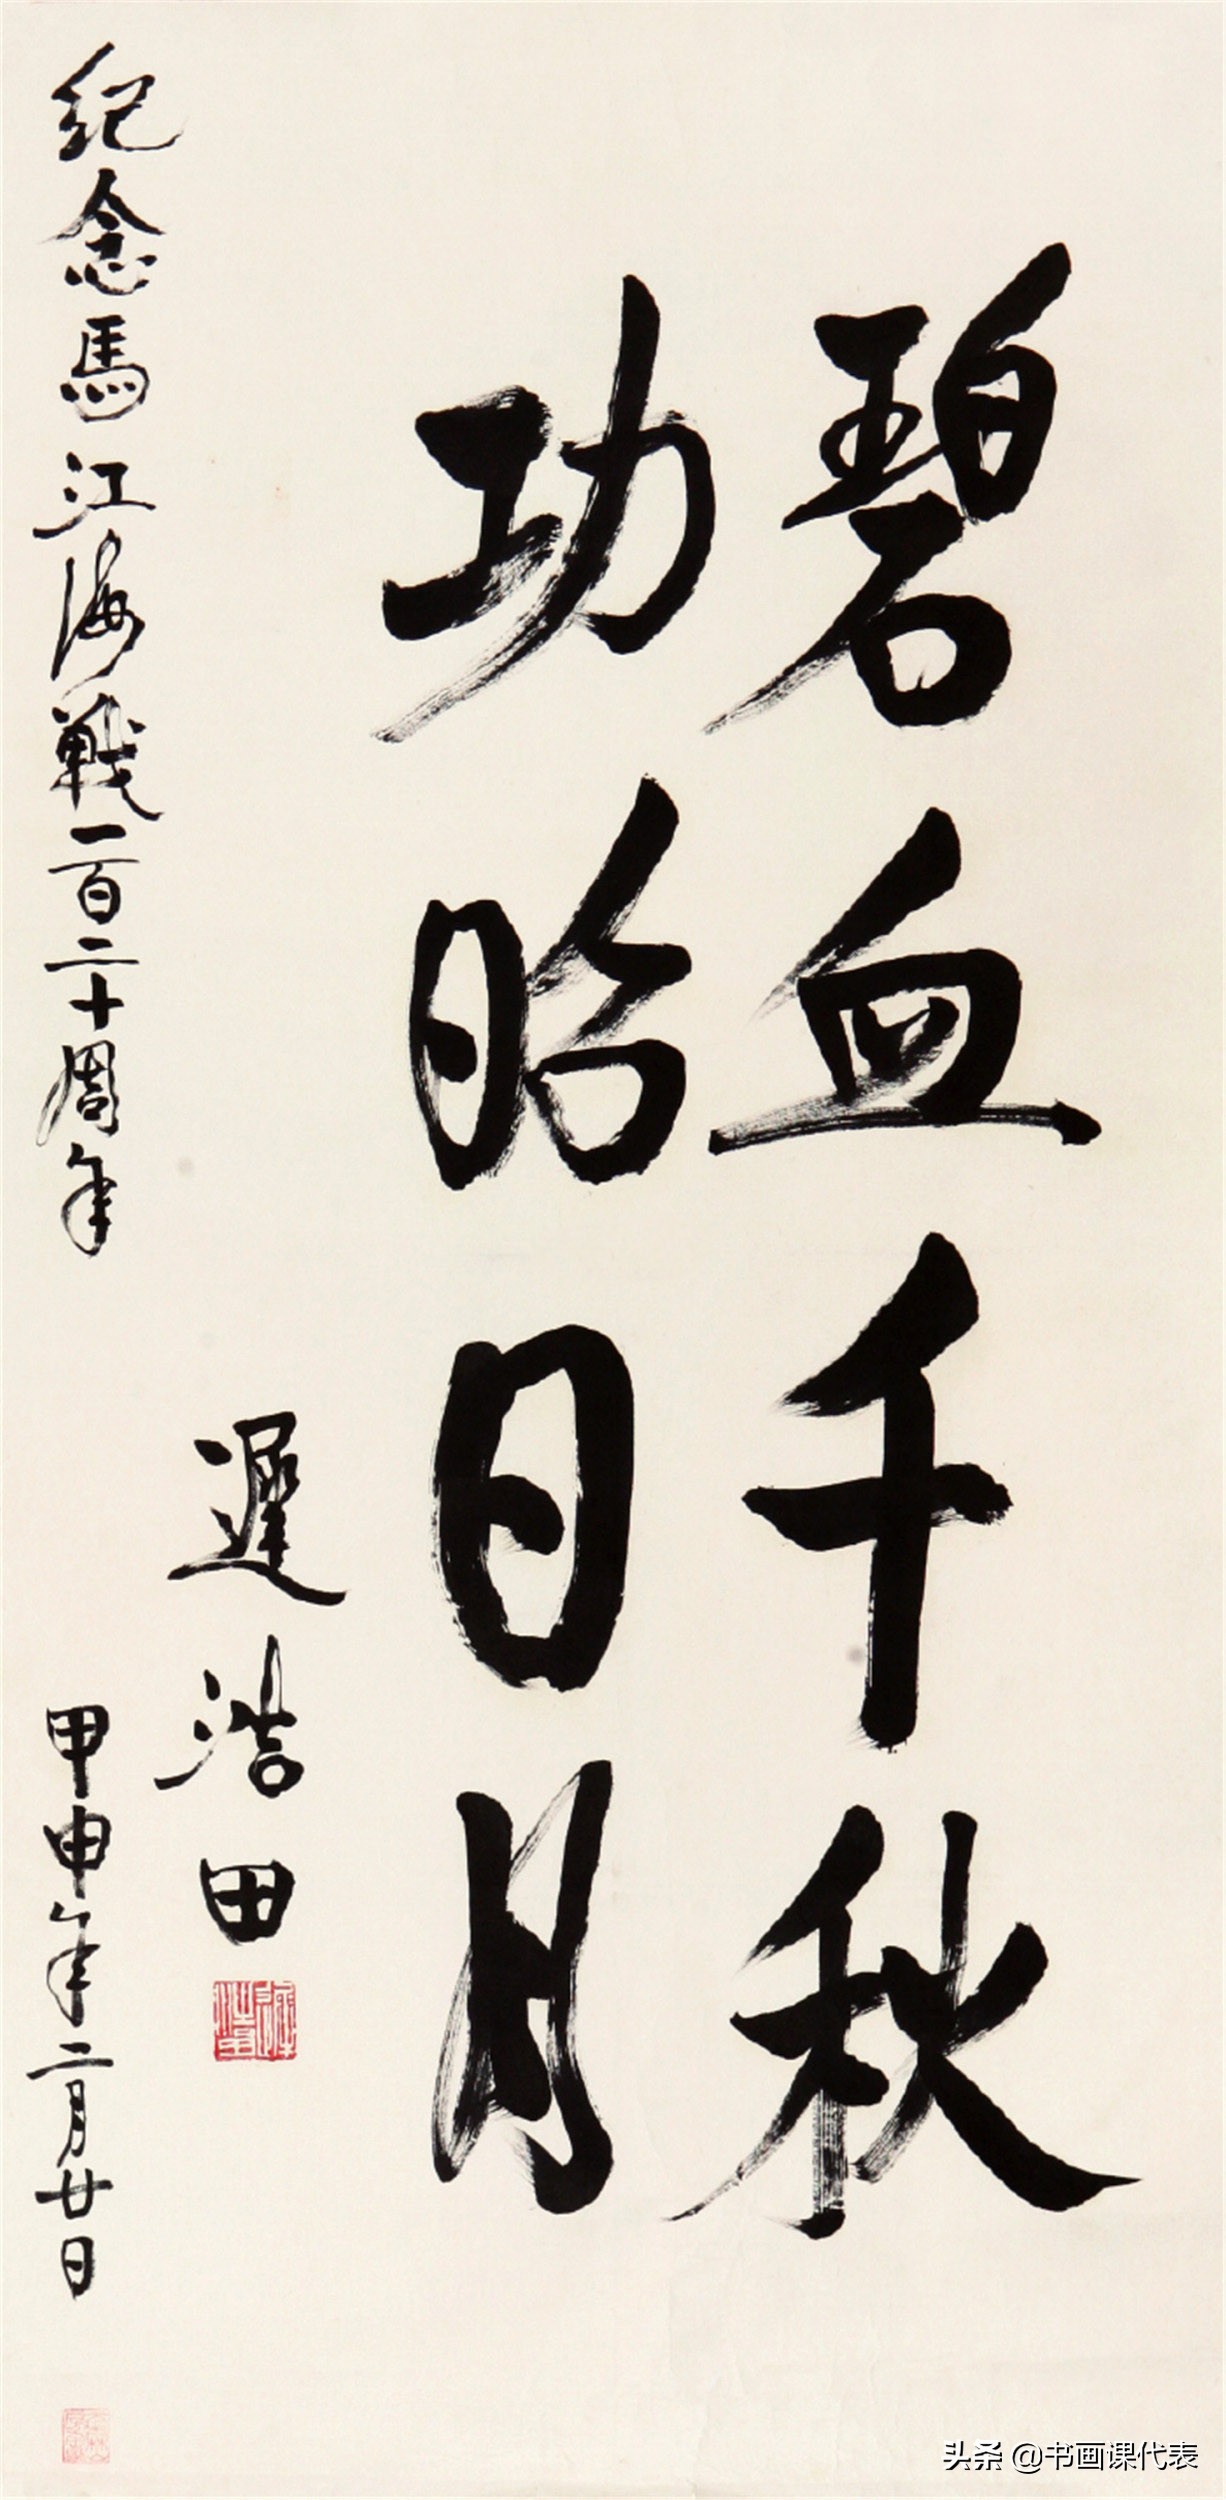 碧血千秋
功昭日月
遲浩田
紀念馬江海戰一百二十周年
甲申年二月廿日
头条 @书画课代表